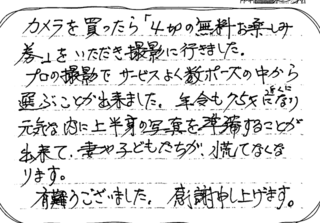 カメラを買ったら「4切の無料お楽しみ
券」をいただき撮影に行きました。
プロの撮影で サービスよく数ポーズの中から
選ぶことが出来ました。年令も75才近くになり
元気な内に上半身の写真を準備することが
出来て、妻や子どもたちが、慌てなくな
ります。
有難うございました。感謝申し上げます。